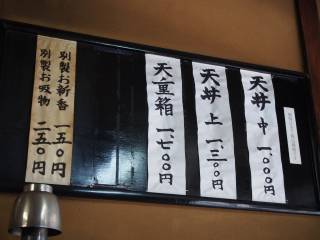 天丼 中 一、〇〇〇円
天丼 上 一、三〇〇円
天重箱 一、七〇〇円
別製お新香 一五〇円
別製お吸物 二五〇円